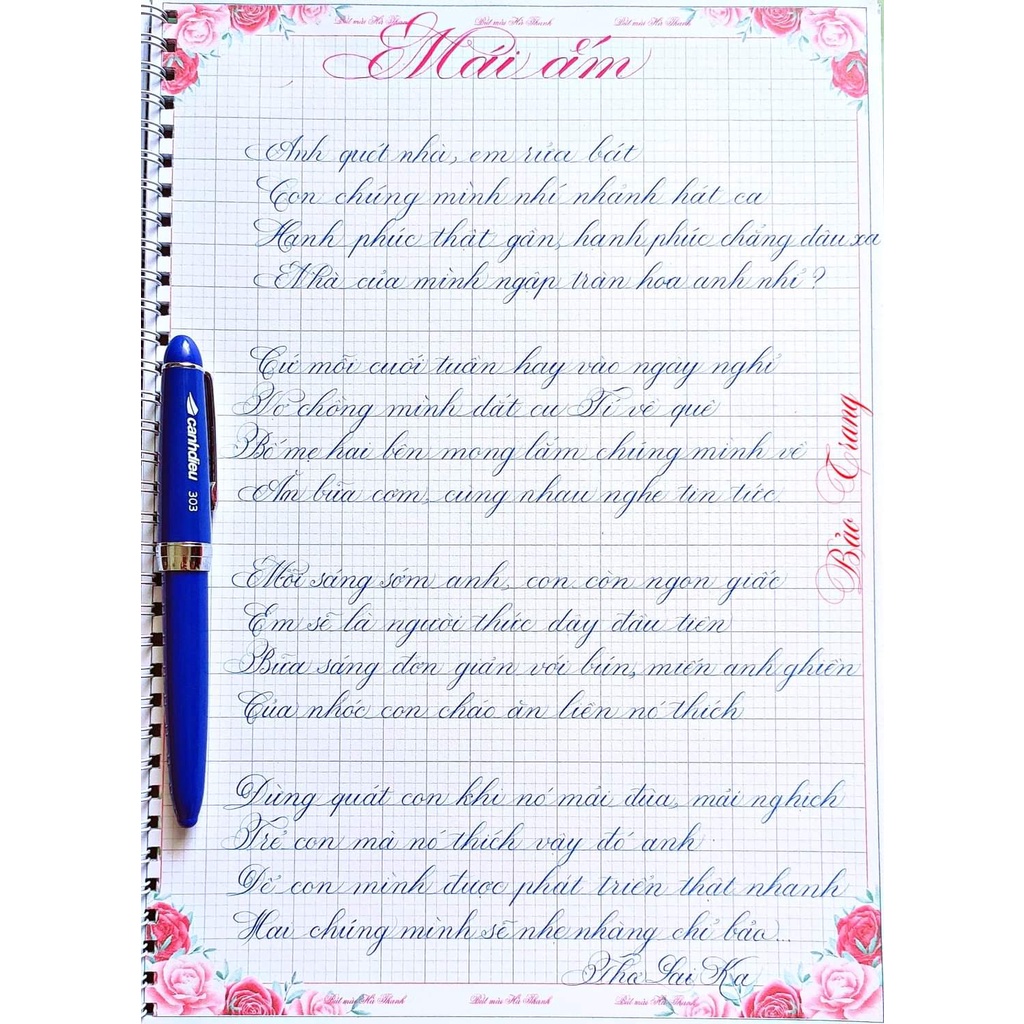 Bút mài Hà Thanh Bút mài Hà Thanh Bút mài Hà Thanh
Mái ấm
Anh quét nhà, em rửa bát
Con chúng mình nhí nhảnh hát ca
Hạnh phúc thật gần, hạnh phúc chẳng đâu xa
Nhà của mình ngập tràn hoa anh nhỉ?
Cứ mỗi cuối tuần hay vào ngày nghỉ
Vợ chồng mình dắt cu Tí về quê
Bố mẹ hai bên mong lắm chúng mình về
Ăn bữa cơm, cùng nhau nghe tin tức.
Mỗi sáng sớm anh, con còn ngon giấc
Em sẽ là người thức dậy đầu tiên
Bữa sáng đơn giản với bún, miến anh ghiền
Của nhóc con cháo ăn liền nó thích
Đừng quát con khi nó mải đùa, mải nghịch
Trẻ con mà nó thích vậy đó anh.
Để con mình được phát triển thật nhanh
Hai chúng mình sẽ nhẹ nhàng chỉ bảo...
Thơ Lai Ka
Bảo Trang
canhdieu 303
Bút mài Hà Thanh Bút mài Hà Thanh Bút mài Hà Thanh